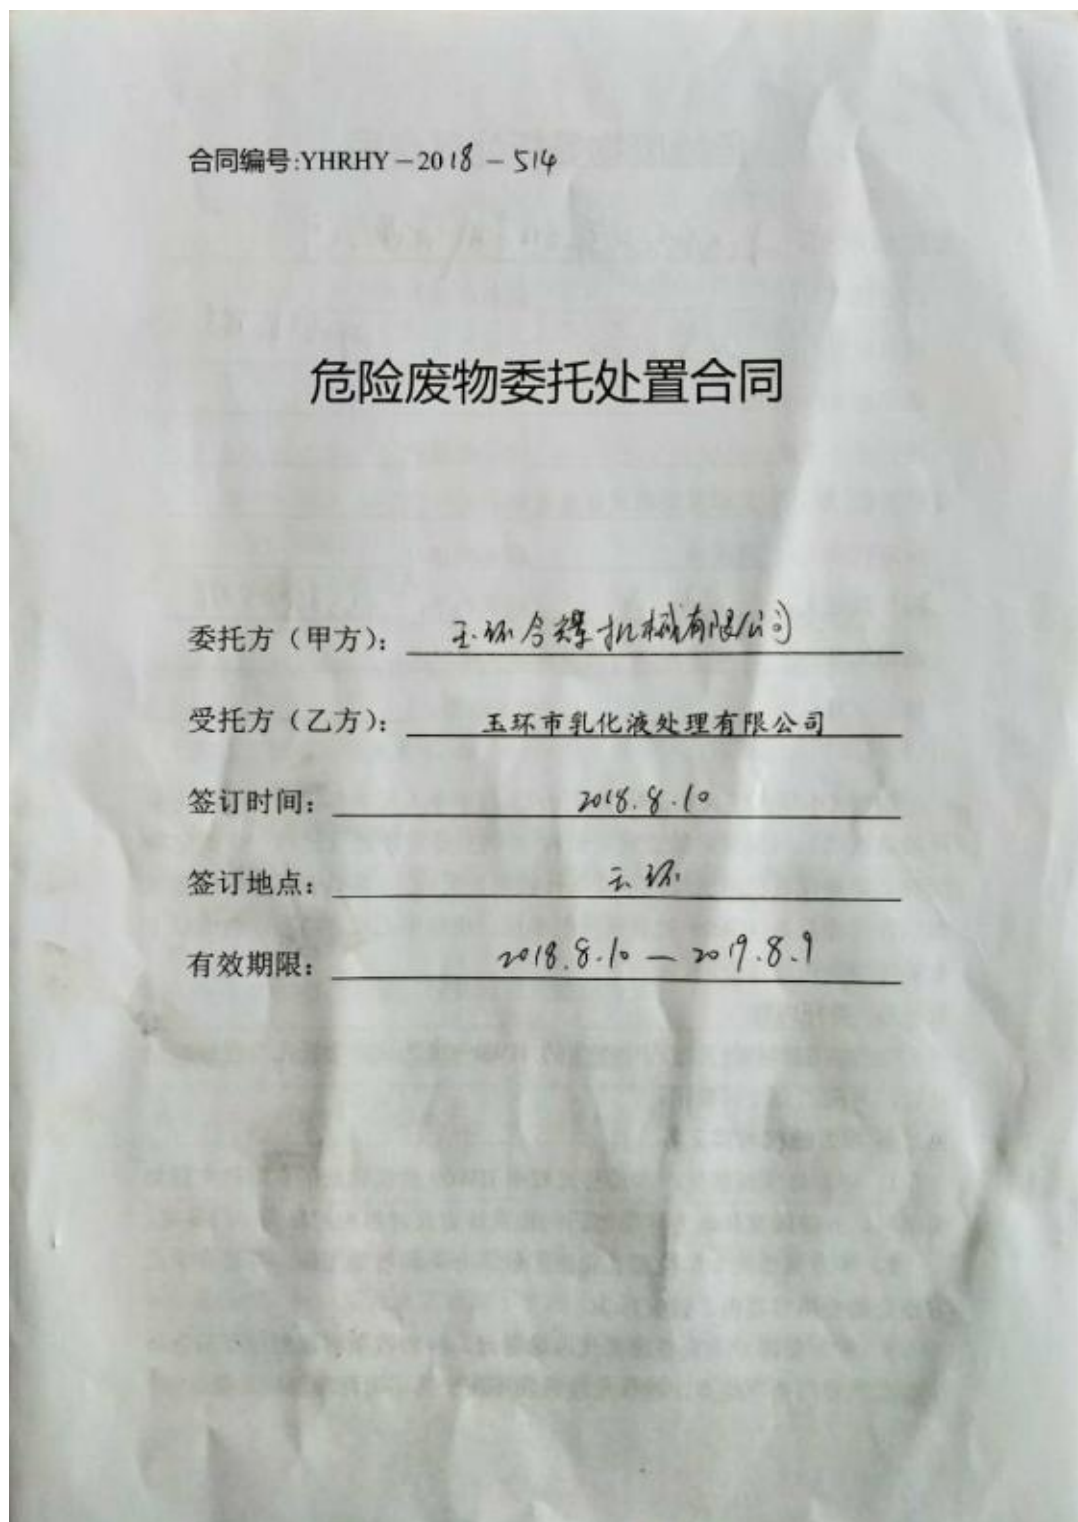 合同编号:YHRHY－2018－514
危险废物委托处置合同
委托方（甲方）： 玉环合 机械有限公司
受托方（乙方）： 玉环市乳化液处理有限公司
签订时间： 2018.8.10
签订地点： 玉环
有效期限： 2018.8.10 — 2019.8.9